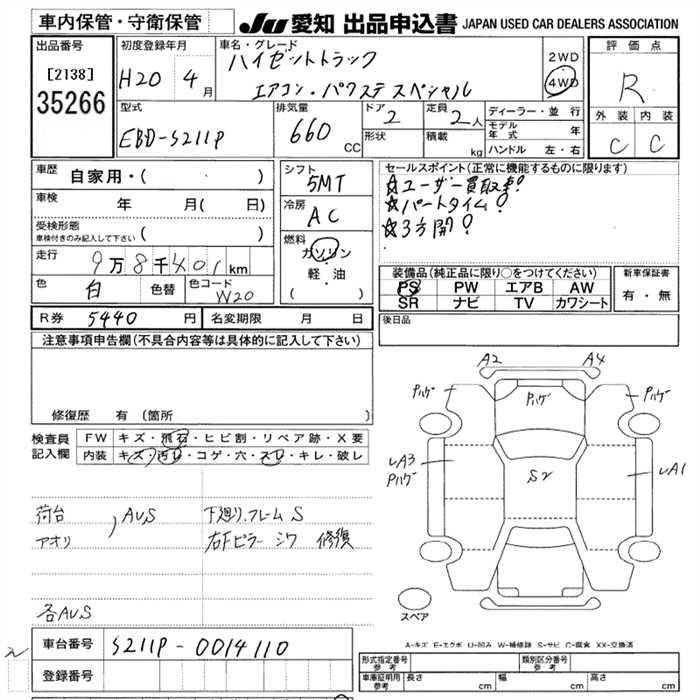 車内保管・守衛保管 JU 愛知 出品申込書 JAPAN USED CAR DEALERS ASSOCIATION
出品番号 初度登録年月 車名・グレード 評価点
[2138] H20 4月 ハイゼットトラック 2WD
35266 エアコン・パワステ スペシャル 4WD R
型式 排気量 ドア 2 定員 2人 ディーラー・並行 外装 内装
EBD-S211P 660 CC 形状 積載 kg モデル年式 年 C C
ハンドル 左・右
車歴 自家用・( ) シフト 5MT セールスポイント(正常に機能するものに限ります)
☆ユーザー買取車!
車検 年 月( 日) 冷房 AC ☆パートタイム!
受検形態 ☆3方開!
車検付きのみ記入して下さい ( )
走行 9万8千401km 燃料 ガソリン
軽・油
( )
装備品(純正品に限り○をつけてください) 新車保証書
色 白 色替 色コード W20 PS PW エアB AW 有・無
SR ナビ TV カワシート
R券 5440 円 名変期限 月 日 後日品
注意事項申告欄(不具合内容等は具体的に記入して下さい)
A2 A4
パハゲ パハゲ パハゲ
修復歴 有(箇所 )
検査員記入欄 FW キズ・飛石・ヒビ割・リペア跡・X要
内装 キズ・汚レ・コゲ・穴・スレ・キレ・破レ
LA3 パハゲ S2 LA1
荷台 アオリ , AUS 下廻り.フレーム S
右Fピラー シワ 修復
各AUS
スペア
車台番号 S211P-0014110
A-キズ E-エクボ U-凹み W-補修跡 S-サビ C-腐食 XX-交換済
登録番号
形式指定番号 参考 類別区分番号 参考
車庫証明用 参考 長さ cm 幅 cm 高さ cm